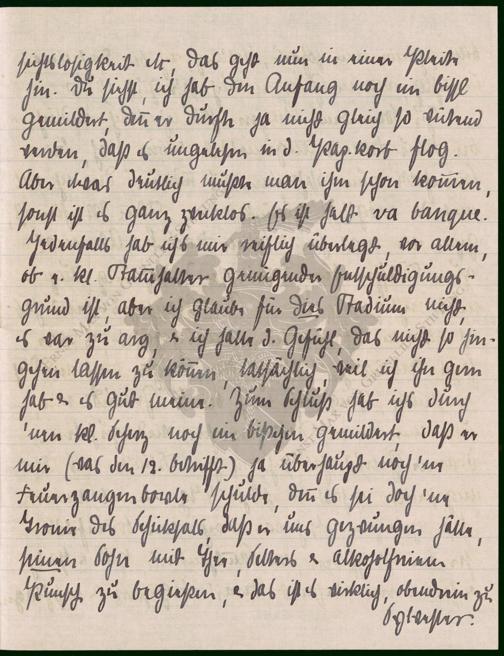 sichtslosigkeit etc, das geht nun in einer Pleite
hin. Du siehst, ich hab den Anfang noch ein bissl
gemildert, denn er durfte ja nicht gleich so wütend
werden, daß es ungelesen in d. Pap.korb flog.
Aber etwas deutlich mußte man ihm schon kommen,
sonst ist es ganz zwecklos. Es ist halt va banque.
Jedenfalls hab ichs mir reiflich überlegt, vor allem,
ob e. kl. Stammhalter genügender Entschuldigungs-
grund ist, aber ich glaube für dies Stadium nicht,
es war zu arg, & ich hatte d. Gefühl, das nicht so hin-
gehen lassen zu können, tatsächlich, weil ich ihn gern
hab & es gut meine. Zum Schluß hab ichs durch
'nen kl. Scherz noch ein bißchen gemildert, daß er
mir (was den 12. betrifft) ja überhaupt noch 'ne
Feuerzangenbowle schulde, denn es sei doch 'ne
Ironie des Schicksals, daß er uns gezwungen hätte,
seinen Sohn mit Thee, Selters & alkoholfreiem
Punsch zu begießen, & das ist es wirklich, obendrein zu
Sylvester.